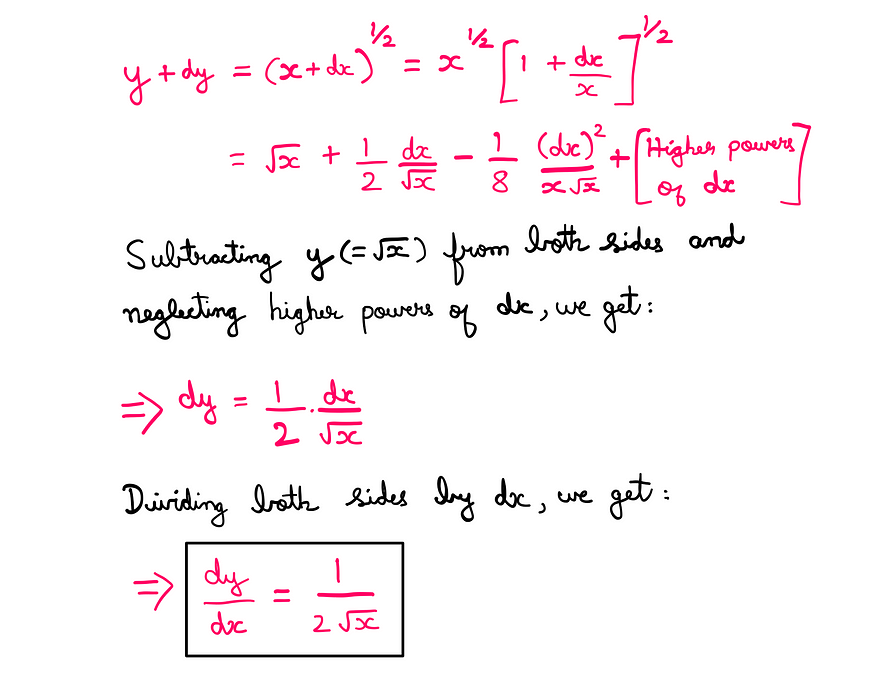 y + dy = (x + dx)^{1/2} = x^{1/2} [1 + dx/x]^{1/2}
= √x + 1/2 dx/√x - 1/8 (dx)^2/x√x + [Higher powers of dx]
Subtracting y (= √x) from both sides and
neglecting higher powers of dx, we get:
⇒ dy = 1/2 · dx/√x
Dividing both sides by dx, we get:
⇒ dy/dx = 1/2√x